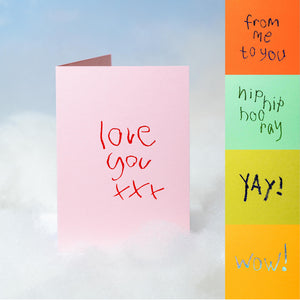 love
you
xxx
from
me
to you
hip hip
hoo
ray
YAY!
WOW!